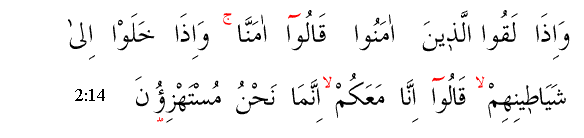 وَاِذَا لَقُوا الَّذٖينَ اٰمَنُوا قَالُٓوا اٰمَنَّاۚ وَاِذَا خَلَوْا اِلٰى
شَيَاطٖينِهِمْۙ قَالُٓوا اِنَّا مَعَكُمْۙ اِنَّمَا نَحْنُ مُسْتَهْزِؤُ۫نَ 2:14